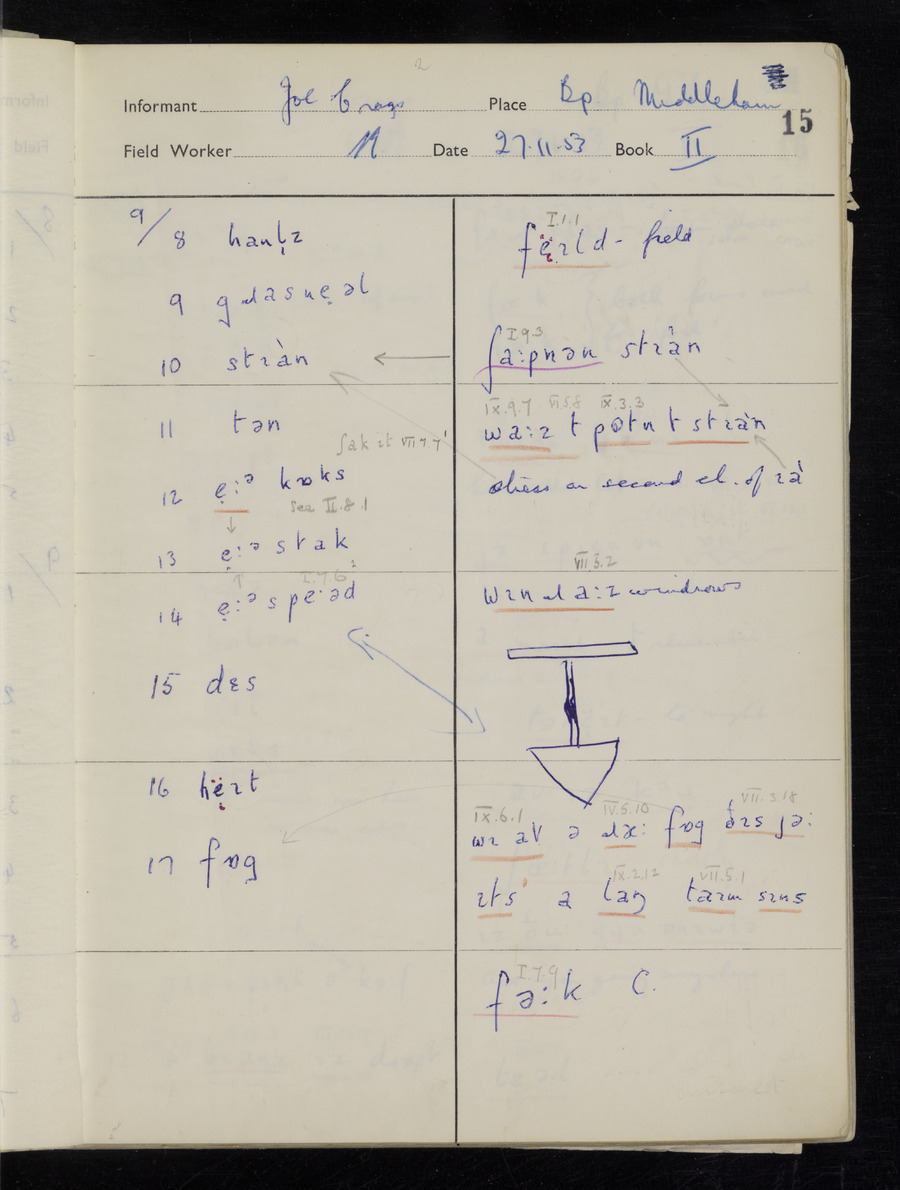 2
Informant Joe Place Bp Middleham
15
Field Worker N Date 27.11.53 Book II
9/8 hanḷz
9 gɹasnẹəl
10 stɹàn
11 tən
ʃak ɪt VII.7.7
12 ẹ:ə kɒks
see II.8.1
↓
13 ẹ:ə stak
↑ I.7.6
14 ẹ:ə speəd
15 dɛs
16 hëɪt
17 fɒg
I.1.1
fëɪld - field
I.9.3
ʃa:pnən stɹàn
IX.9.7 VI.5.8 IX.3.3
wa:z t pɒtn t stɹàn
stress on second el. of ɹà
VII.3.2
wɪndɹa:z windows
IX.6.1 IV.5.10 VII.3.18
wɪ av ə fɒg ðɪs jə:
IX.2.12 VII.5.1
ɪts a laŋ taɪm sɪns
I.7.9
fə:k C.